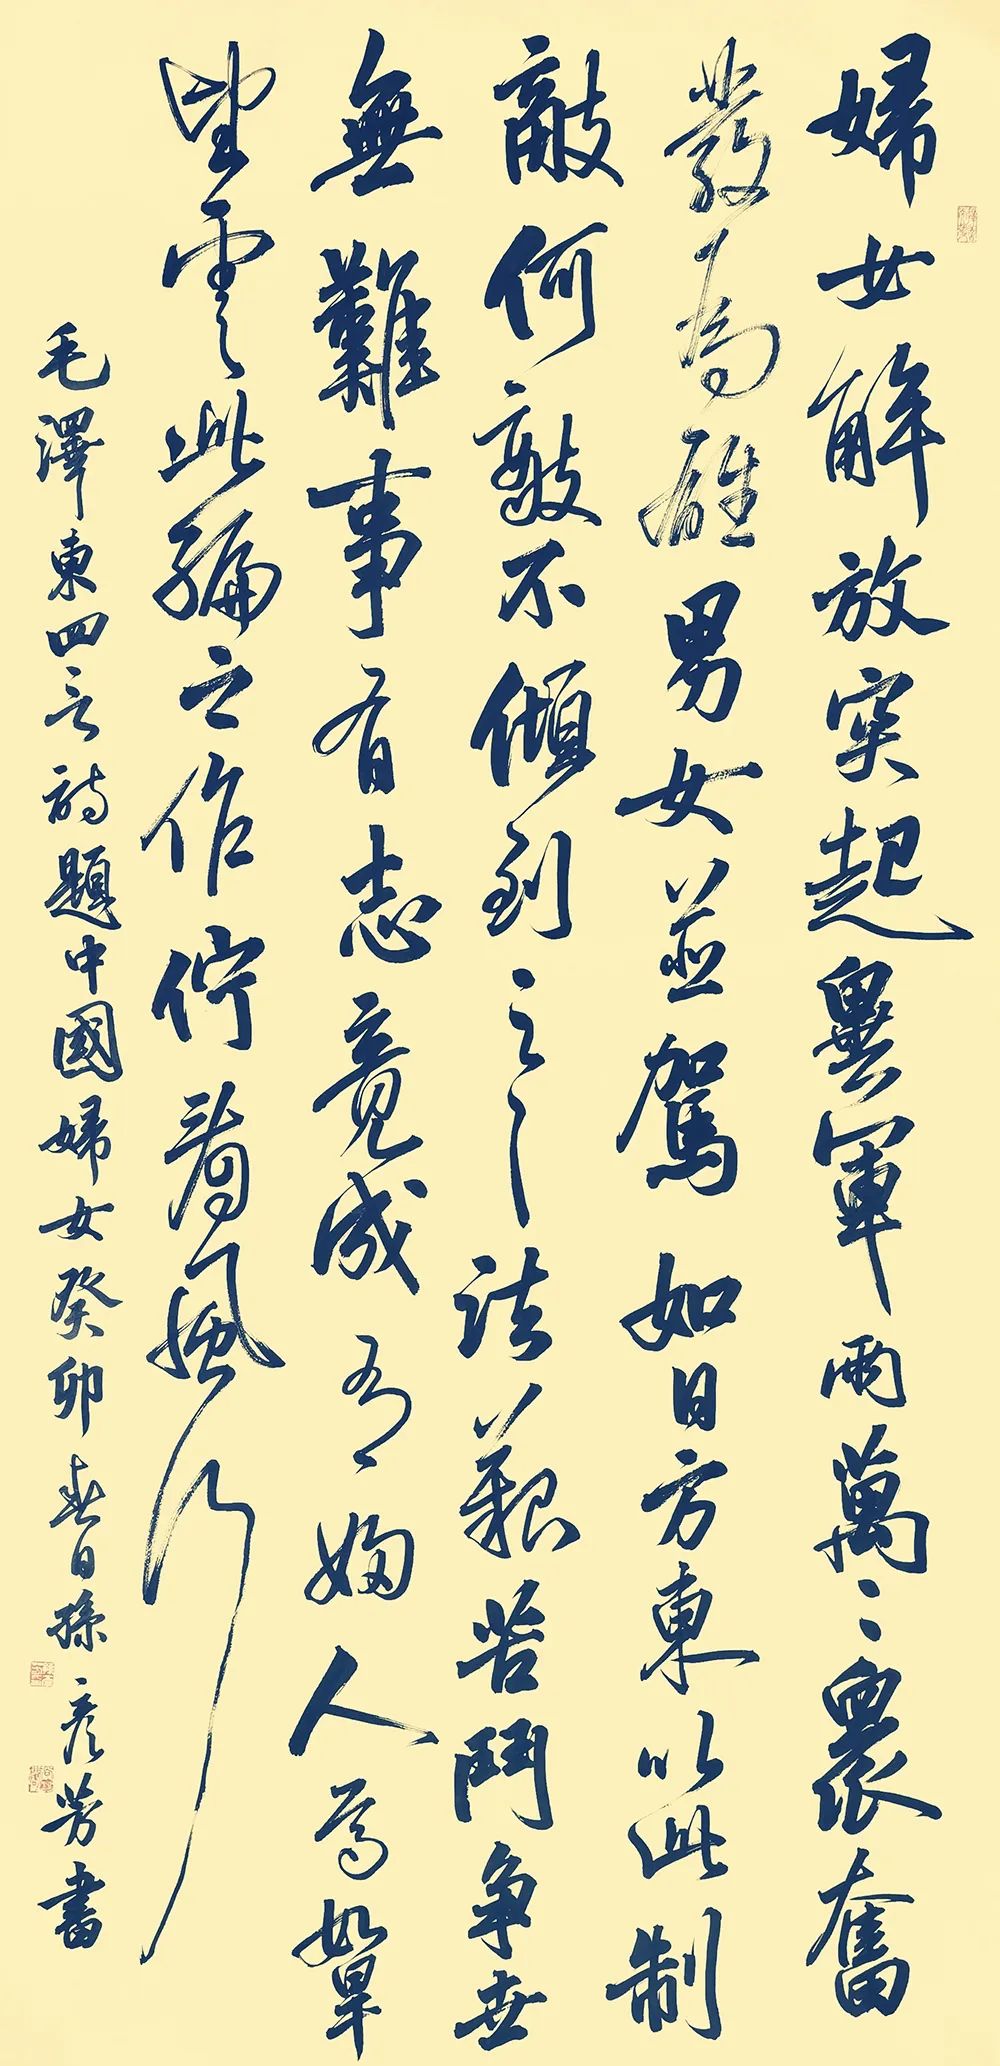 婦女解放突起異軍兩萬〻衆奮
發爲雄男女並駕如日方東以此制
敵何敵不傾到之之法艱苦鬥爭世
無難事有志竟成有婦人焉如旱
望雲此編之作佇看風行
毛澤東四言詩題中國婦女癸卯春日孫彥芳書